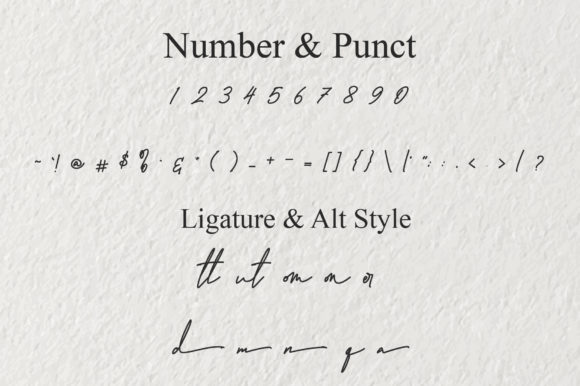 Number & Punct
1 2 3 4 5 6 7 8 9 0
~ `! @ # $ % ^ & * ( ) _ + - = [ ] { } \ | ' " ; : , . < > / ?
Ligature & Alt Style
tt ut om on er
d m n q a